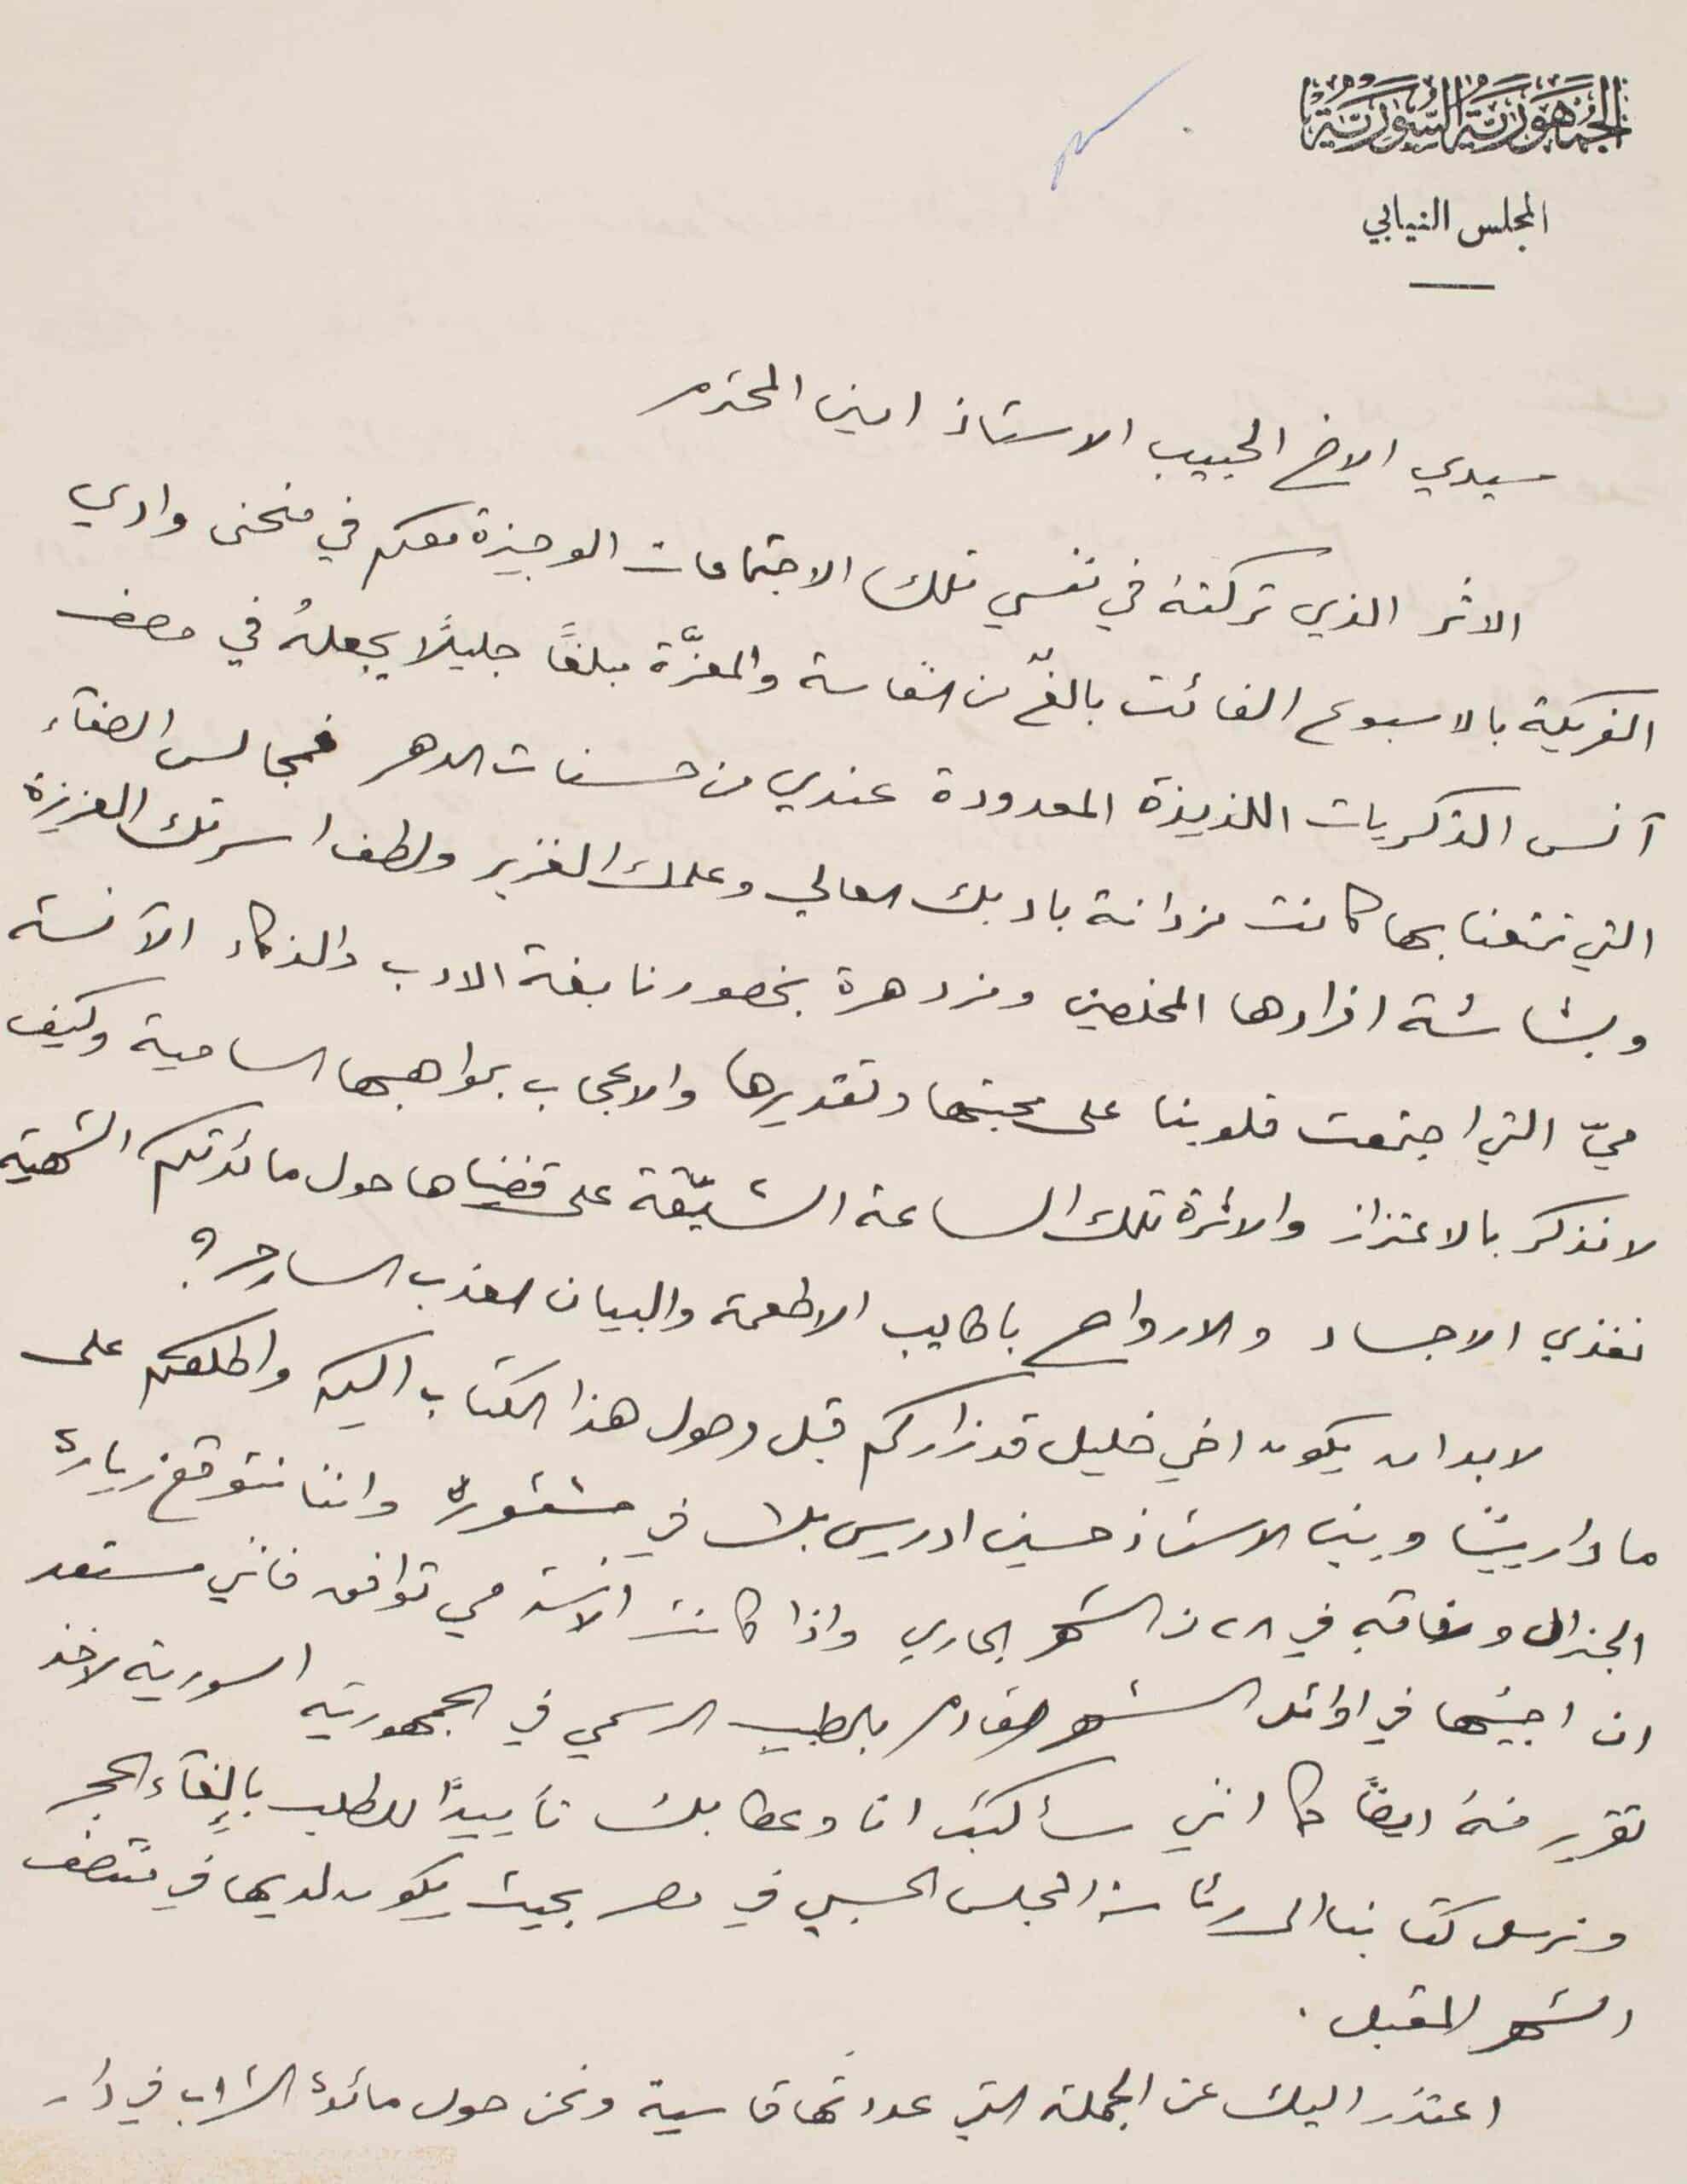 الجمهورية السورية
المجلس النيابي
سيدي الاخ الحبيب الاستاذ امين المحترم
الاثر الذي تركته في نفسي تلك الاجتماعات الوجيزة معكم في منحنى وادي
الفريكة بالاسبوع الفائت بالغٌ من النفاسة والمعزَّة مبلغاً جليلًا يجعلهُ في مصف
آنس الذكريات اللذيذة المعدودة عندي من حسنات الدهر فمجالس الصفآء
التي تمتعنا بها كانت مزدانة بادبك العالي وعلمك الغزير ولطف اسرتك العزيزة
وبشاشة افرادها المخلصين ومزدهرة بحضور نابغة الادب والذكاء الآنسة
ميّ التي اجتمعت قلوبنا على محبتها وتقديرها والاعجاب بمواهبها السامية وكيف
لا نذكر بالاعتزاز والاثرة تلك الساعة الشيّقة على قضيناها حول مائدتكم الشهية
نغذي الاجساد والارواح باطايب الاطعمة والبيان العذب الساحر؟
لا بد ان يكون اخي خليل قد زاركم قبل وصول هذا الكتاب اليك واطلعكم على
ما دار بيننا وبين الاستاذ حسين ادريس بك في وانا نتوقع زيارة
الجنرال ورفاقه في ٢٨ من الشهر الجاري واذا كانت الآنسة مي توافق فاني مستعد
ان اجيئها في اوائل الشهر القادم بالطبيب الرسمي في الجمهورية السورية لاخذ
تقرير منه ايضاً كما انني سأكتب انا وعطا بك تأييداً للطلب بإلغآء الحجر
ونرسل كتابنا الى رئاسة المجلس الحسبي في مصر بحيث يكون لديها في منتصف
الشهر المقبل.
اعتذر اليك عن الجملة التي عددتها قاسية ونحن حول مائدة الشراب في دار